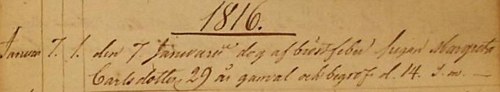 1816.
Januari 7. 1. den 7 Januarii dog af bröstfeber Pigan Margreta
Carlsdotter 29 år gammal och begrofs d. 14. s. m.